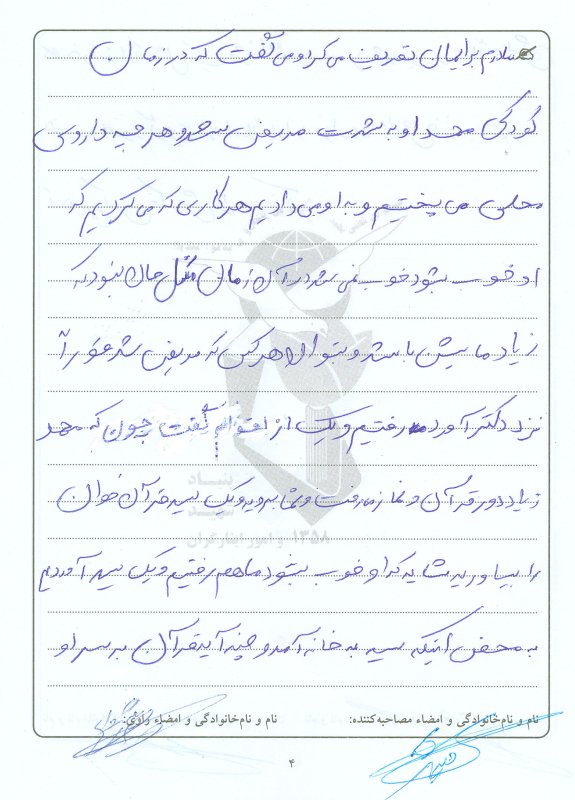 مادرم برایمان تعریف می کرد و می گفت که در زمان
کودکی محمد او به شدت مریض می شد و هر چه داروی
محلی می پختیم و به او می دادیم هر کاری که می کردیم که
او خوب بشود خوب نمی شد در آن زمان مثل حالا نبود که
زیاد ماشین باشد و بتوان هر کس که مریض شد فوراً
نزد دکتر آورد رفتیم و یکی از اقوام گفت چون که محمد
زیاد دور قرآن و نماز می رفت و شما بروید و یک سید قرآن خوان
را بیاورید شاید که او خوب بشود ما هم رفتیم و یک سید آوردیم
به محض اینکه سید به خانه آمد و چند آیه قرآن بر سر او
نام و نام‌خانوادگی و امضاء مصاحبه‌کننده: نام و نام‌خانوادگی و امضاء راوی:
۴
بنیاد
شهید
۱۳۵۸ و امور ایثارگران